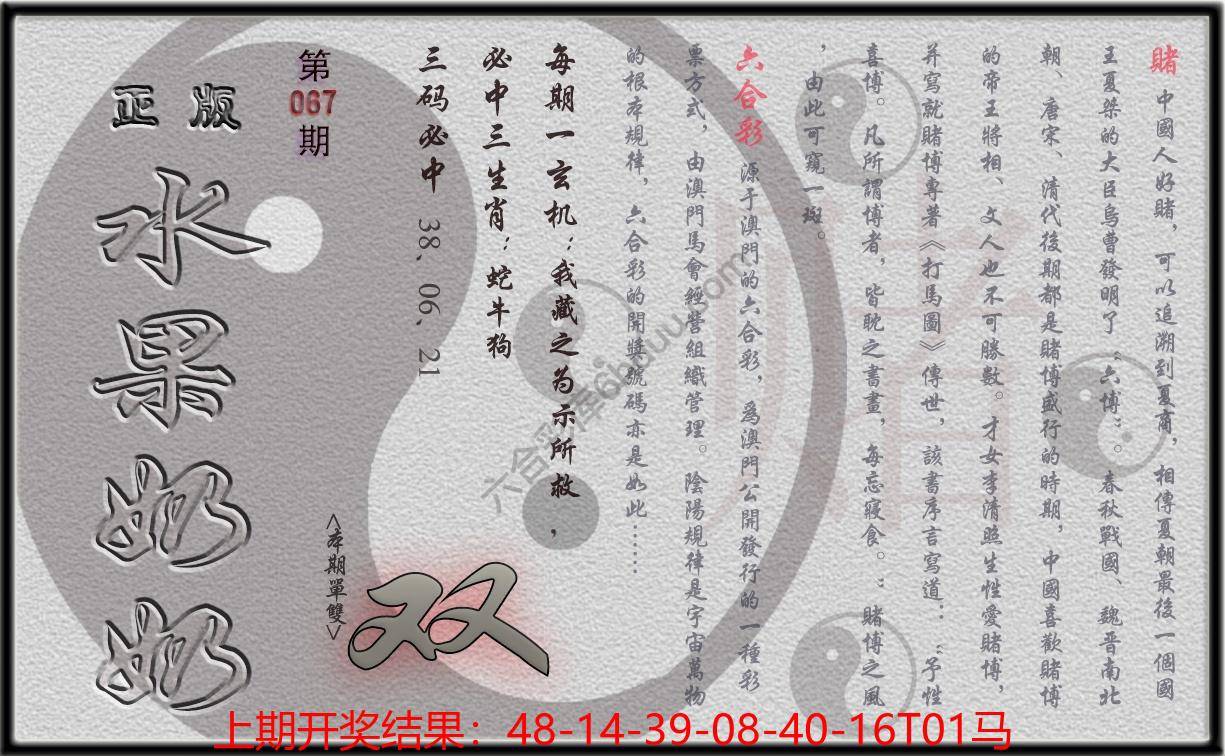 賭 中國人好賭，可以追溯到夏商，相傳夏朝最後一個國
王夏桀的大臣烏曹發明了“六博”。春秋戰國、魏晋南北
朝、唐宋、清代後期都是賭博盛行的時期，中國喜歡賭博
的帝王將相、文人也不可勝數。才女李清照生性愛賭博，
并寫就賭博專著《打馬圖》傳世，該書序言寫道：：“予性
喜博。凡所謂博者，皆耽之晝畫，每忘寢食。”賭博之風
，由此可窺一斑。
六合彩 源于澳門的六合彩，爲澳門公開發行的一種彩
票方式，由澳門馬會經營組織管理。陰陽規律是宇宙萬物
的根本規律，六合彩的開獎號碼亦是如此……
每期一玄机：我藏之为示所救，
必中三生肖：蛇牛狗
三码必中 38、06、21
第
067
期
正版
水果奶奶
<本期單雙>
双
六合彩库6huuu.com
赌
上期开奖结果：48-14-39-08-40-16T01马